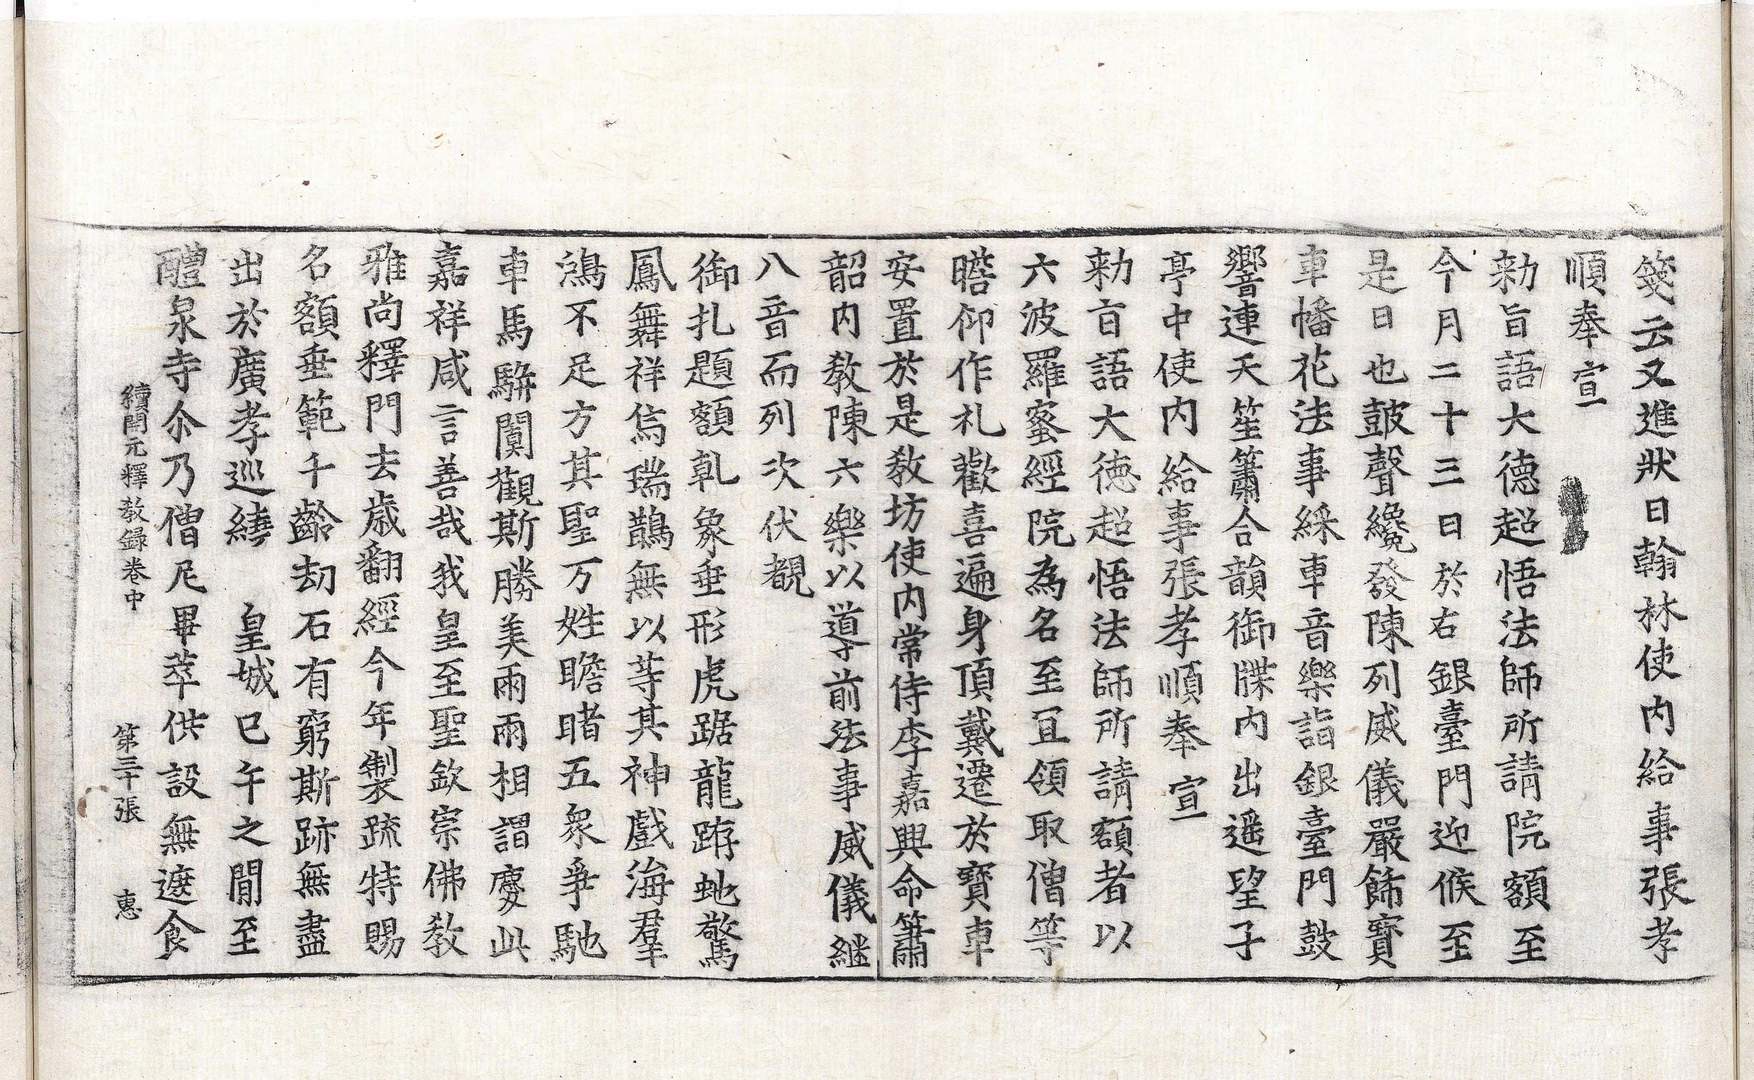 箋云又進狀日翰林使內給事張孝
順奉宣
勑旨語大德超悟法師所請院額至
今月二十三日於右銀臺門迎候至
是日也皷聲纔發陳列威儀嚴餙寶
車幡花法事綵車音樂詣銀臺門鼓
響連天笙簫合韻御牒內出遥望子
亭中使內給事張孝順奉宣
勑旨語大德超悟法師所請額者以
六波羅蜜經院為名至冝領取僧等
瞻仰作礼歡喜遍身頂戴遷於寶車
安置於是教坊使內常侍李嘉興命簫
韶內教陳六樂以導前法事威儀継
八音而列次伏覩
御扎題額乹象垂形虎踞龍蹲虵驚
鳳舞祥烏瑞鵲無以等其神戲海羣
鴻不足方其聖万姓瞻睹五衆爭馳
車馬駢闐觀斯勝美兩兩相謂慶此
嘉祥咸言善哉我皇至聖欽崇佛教
雅尚釋門去歲翻經今年製䟽特賜
名額垂範千齡刧石有窮斯跡無盡
出於廣孝巡繞　皇城巳午之間至
醴泉寺尒乃僧尼畢萃供設無遮食
續開元釋教錄卷中　第三十張　惠